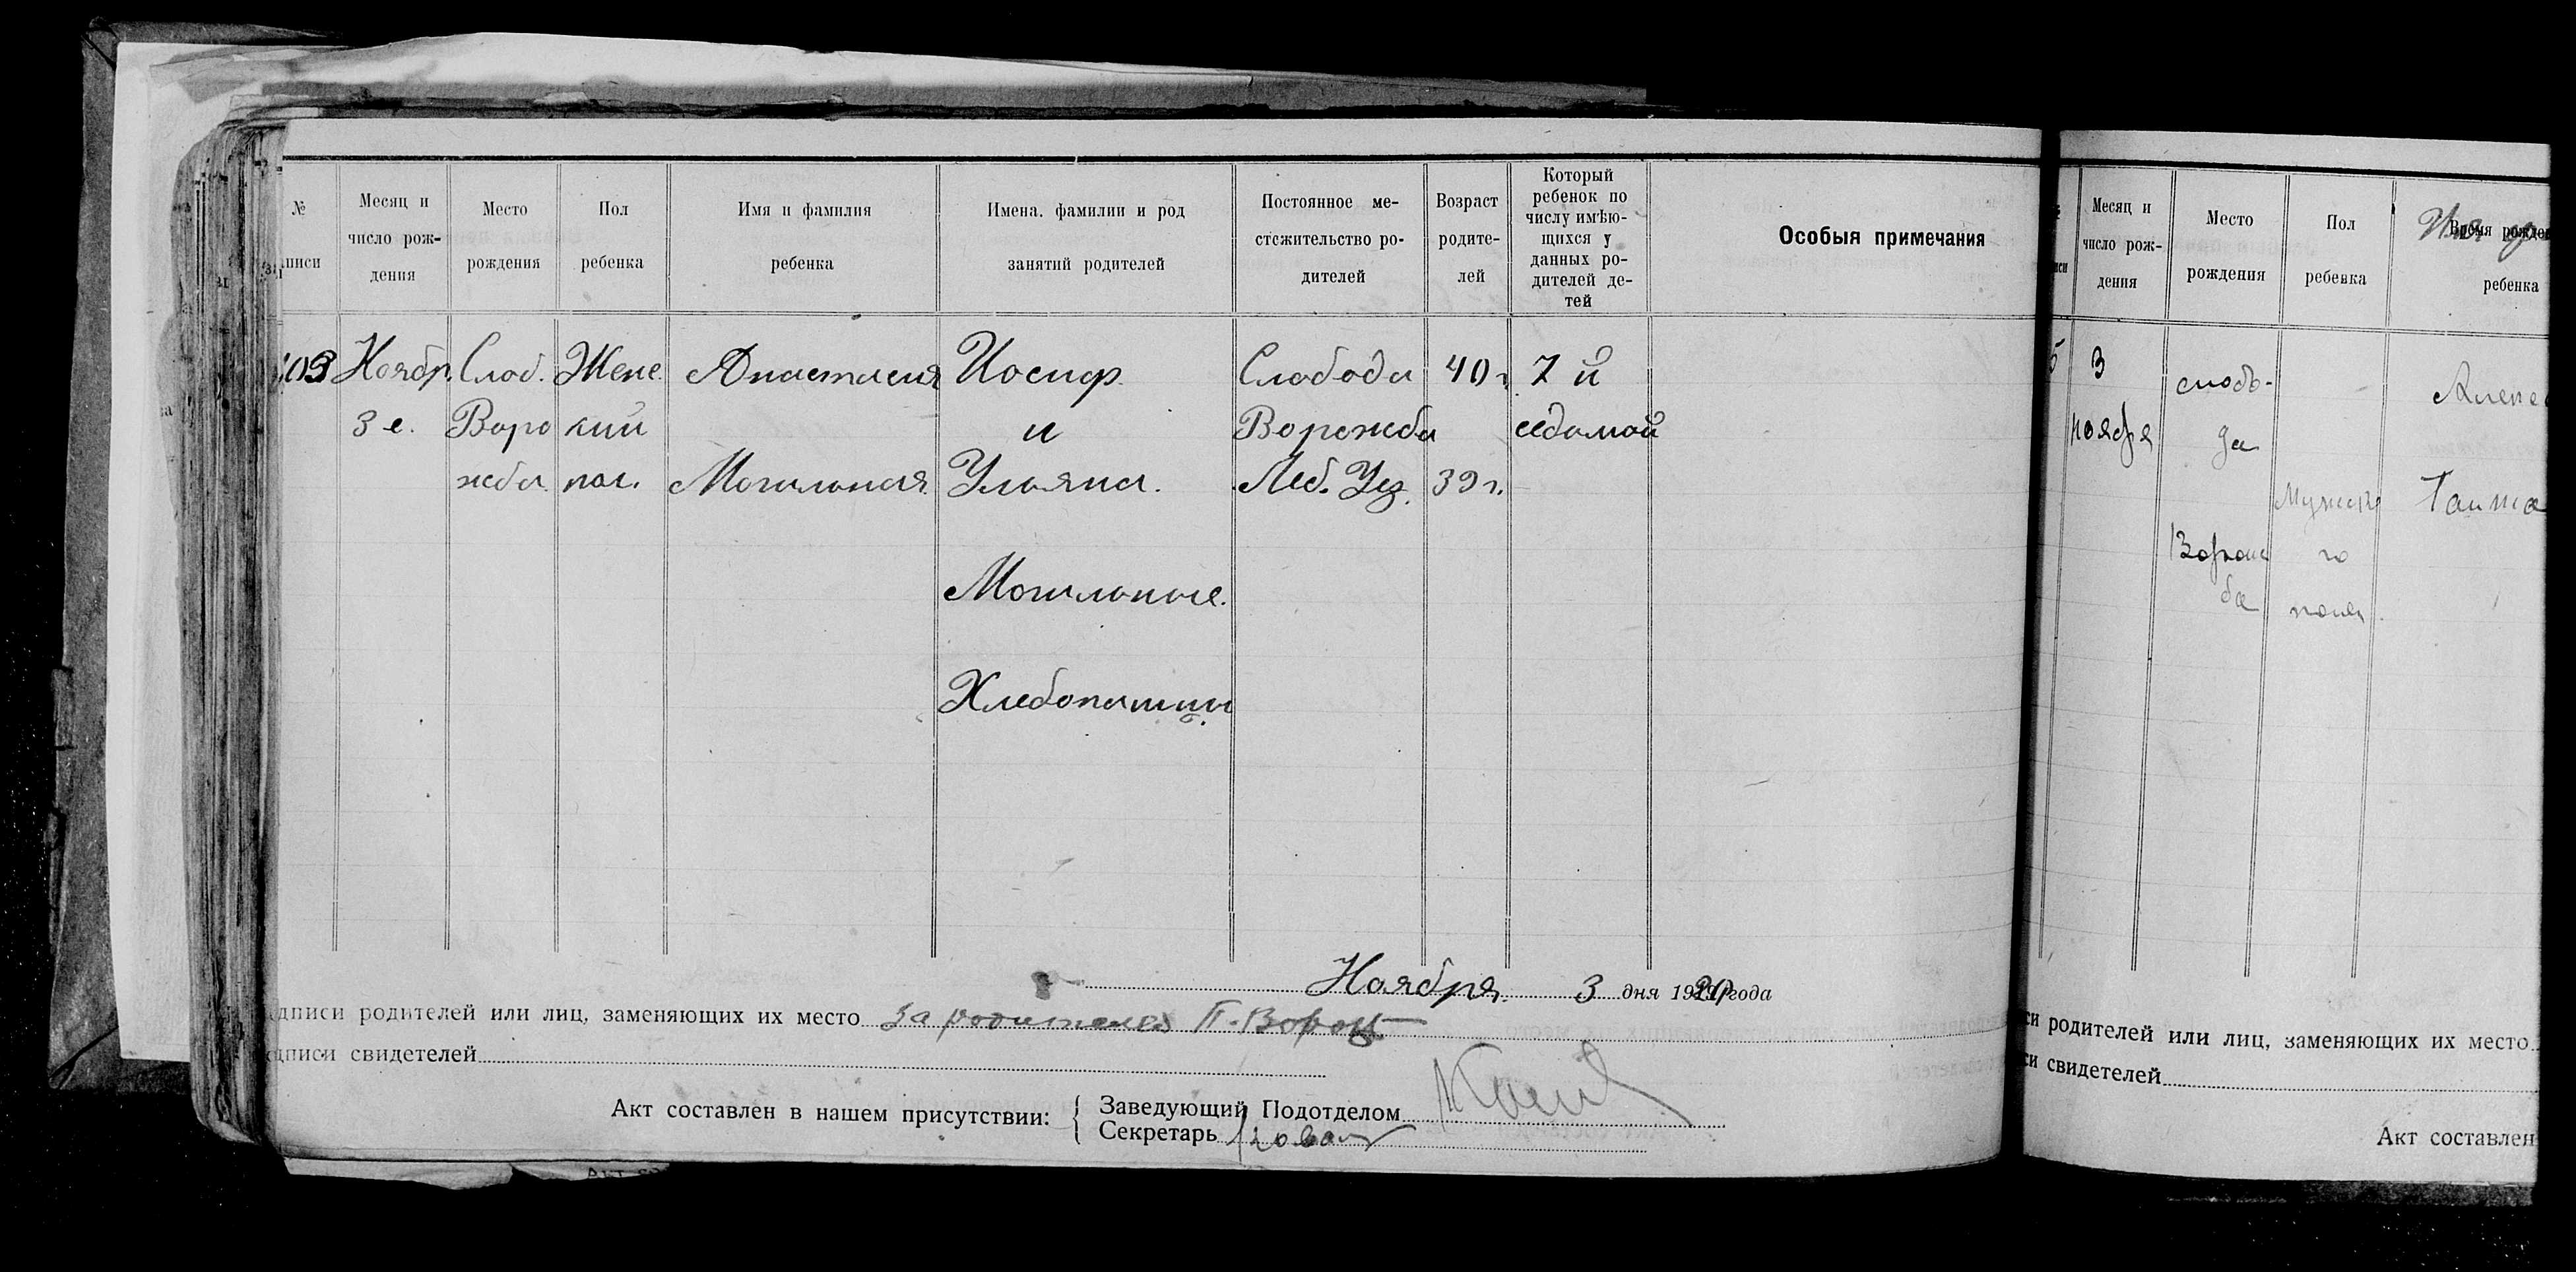 №
Месяц и
число рож-
дения
Место
рождения
Пол
ребенка
Имя и фамилия
ребенка
Имена. фамилии и род
занятий родителей
Постоянное ме-
стожительство ро-
дителей
Возраст
родите-
лей
Который
ребенок по
числу имѣю-
щихся у
данных ро-
дителей де-
тей
Особыя примечания
Ноябр.
3 е.
Слоб.
Воро
жба.
Женс
кий
пол.
Анастасия
Могильная
Иосиф
и
Ульяна.
Могильные.
Хлебопашцы.
Слобода
Ворожба
Леб. Уез.
40 г.
39 г.
7 й
седьмой
Ноября 3 дня 1920 года
дписи родителей или лиц, заменяющих их место за родителей П.
дписи свидетелей
Акт составлен в нашем присутствии:
Заведующий Подотделом
Секретарь
Месяц и
число рож-
дения
Место
рождения
Пол
ребенка
ребенка
3
ноября
слобо-
да
Ворож
ба
Мужско
го
пола.
Алекс
си родителей или лиц, заменяющих их место
си свидетелей
Акт составлен